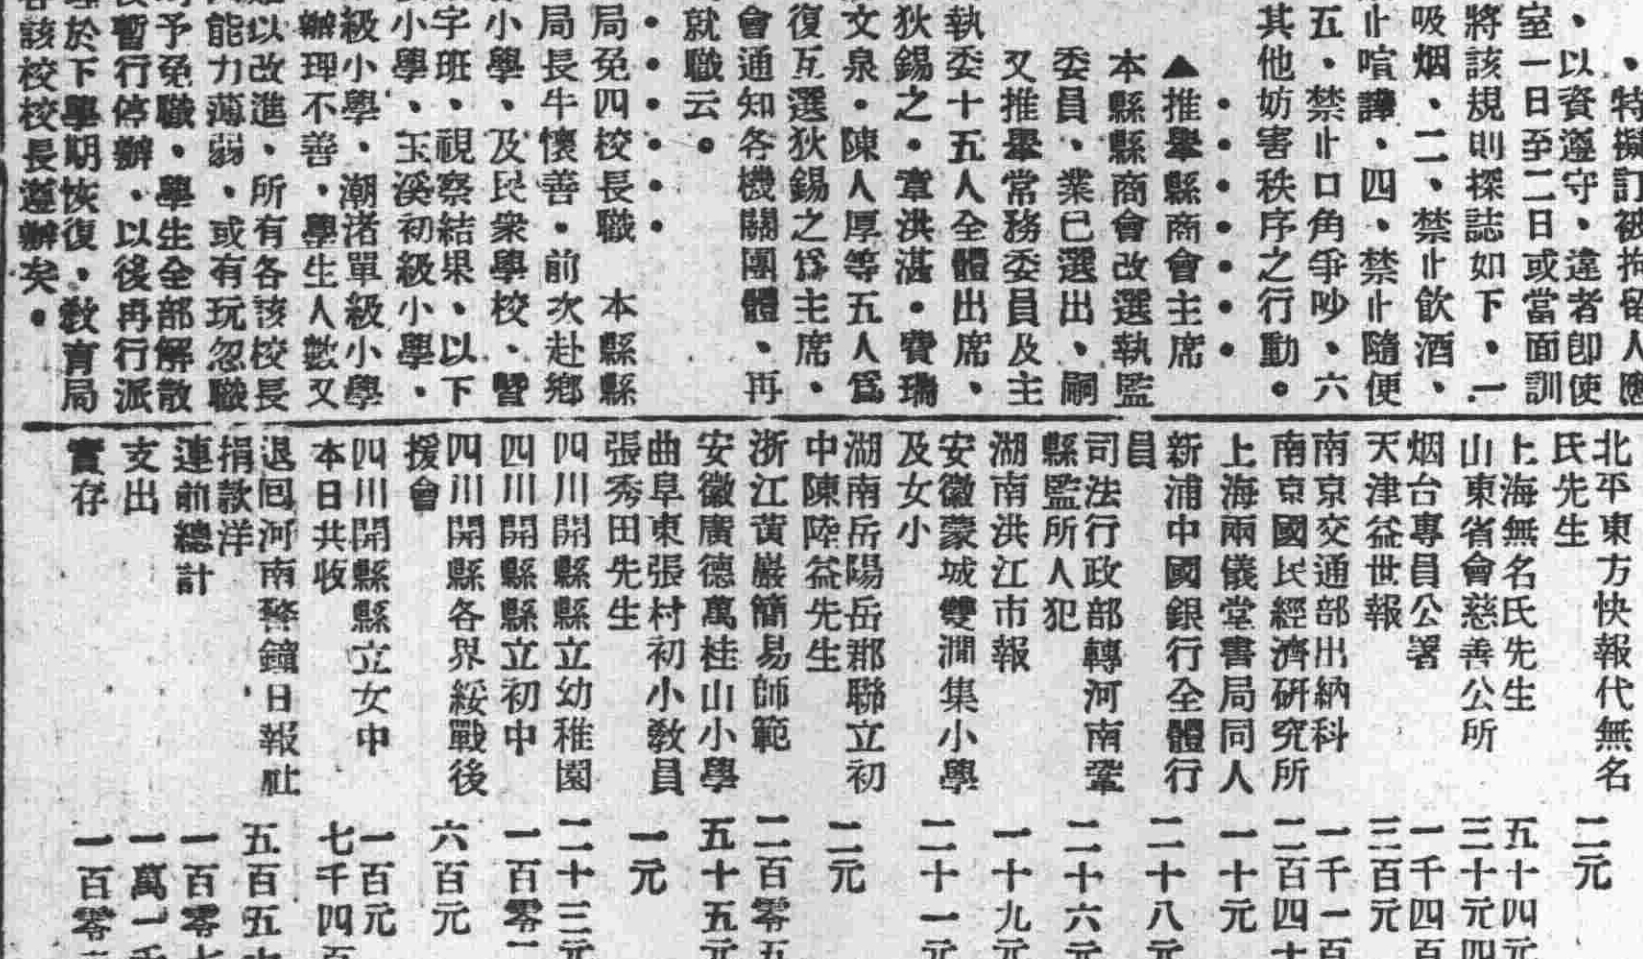 ・特擬訂被拘留人應
・以資遵守・違者卽使
室一日至二日或當面訓
將該規則探誌如下・一
吸烟、二、禁止飲酒、
止喧譁、四、禁止隨便
五・禁止口角爭吵、六
其他妨害秩序之行動。
▲推舉縣商會主席
本縣縣商會改選執監
委員、業已選出、嗣
又推舉常務委員及主
執委十五人全體出席、
狄錫之・章洪湛・費瑞
文泉・陳人厚等五人爲
復互選狄錫之爲主席、
會通知各機關團體、再
就職云。
局免四校長職　本縣縣
局長牛懷善・前次赴鄉
小學、及民衆學校、暨
字班、視察結果、以下
小學、玉溪初級小學、
級小學、潮渚單級小學
辦理不善、學生人數又
以改進、所有各該校長
能力薄弱、或有玩忽職
予免職、學生全部解散
暫行停辦、以後再行派
於下學期恢復、敎育局
該校校長遵辦矣。
北平東方快報代無名　二元
氏先生
上海無名氏先生　五十四元
山東省會慈善公所　三十元四
烟台專員公署　一千四百
天津益世報　三百元
南京交通部出納科　一千一百
南京國民經濟研究所　二百四十
上海兩儀堂書局同人　一十元
新浦中國銀行全體行　二十八元
員
司法行政部轉河南鞏　二十六元
縣監所人犯
湖南洪江市報　一十九元
安徽蒙城雙澗集小學　二十一元
及女小
湖南岳陽岳郡聯立初　二元
中陳陸益先生
浙江黃巖簡易師範　二百零五
安徽廣德萬桂山小學　五十五元
曲阜東張村初小敎員　一元
張秀田先生
四川開縣縣立幼稚園　二十三元
四川開縣縣立初中　一百零二
四川開縣各界綏戰後　六百元
援會
四川開縣縣立女中　一百元
本日共收　七千四百
退回河南警鐘日報社　五百五十
捐款洋
連前總計　一百零七
支出　一萬一千
實存　一百零